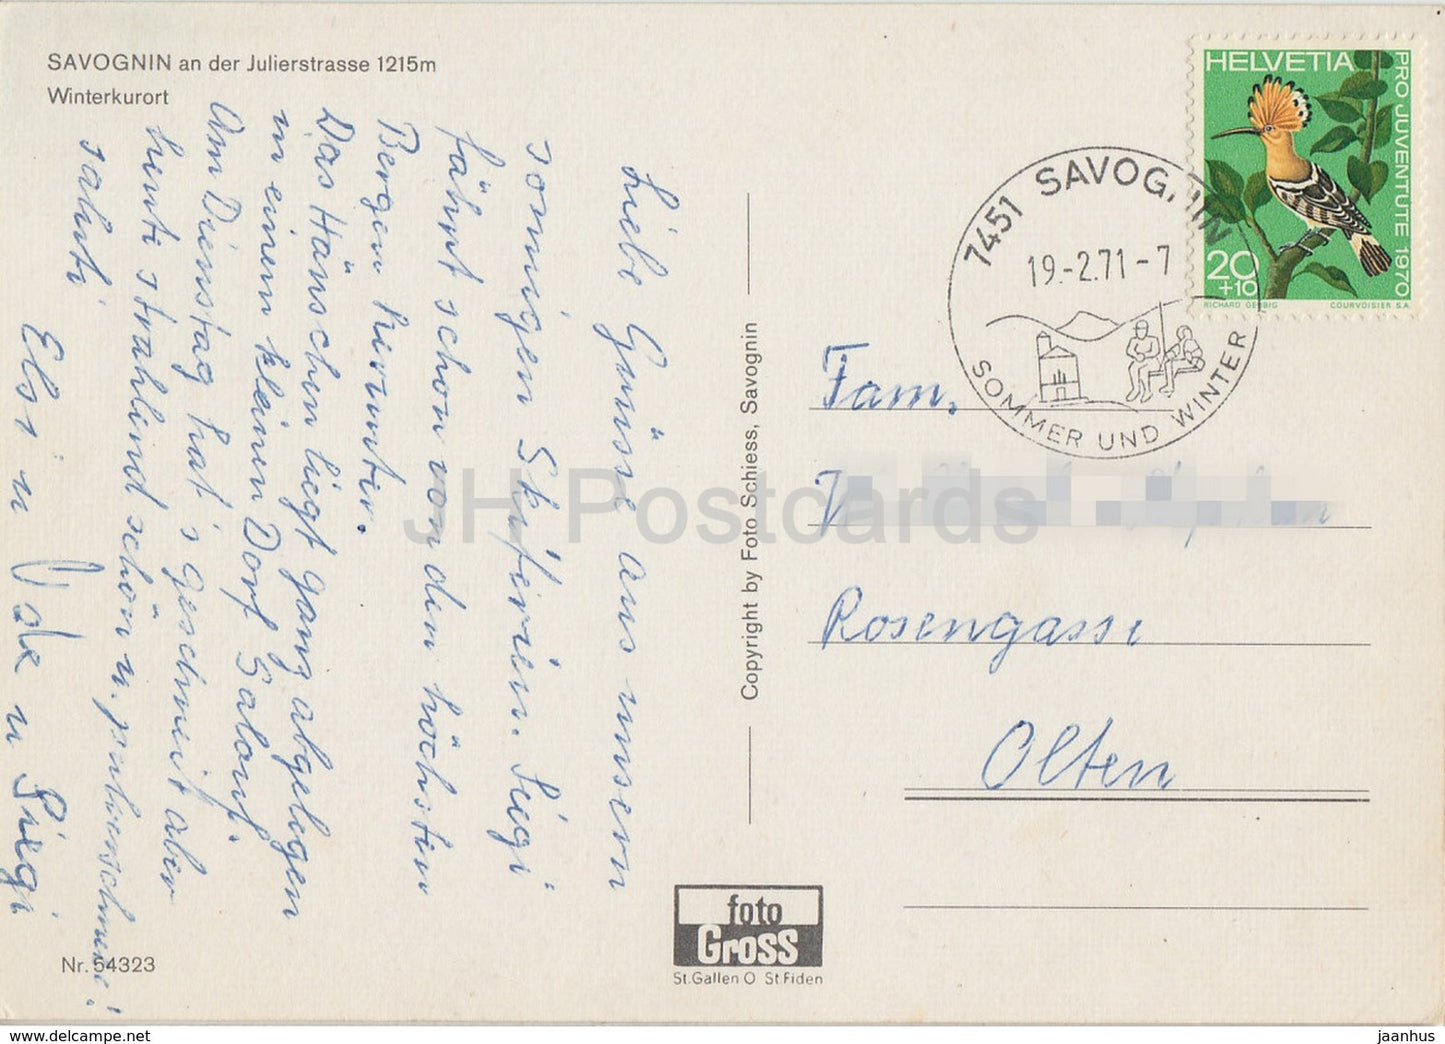 SAVOGNIN an der Julierstrasse 1215m
Winterkurort
Liebe Grüsse aus unsern
sonnigen Skiferien. Siegi
fährt schon von den höchsten
Bergen herunter.
Das Häuschen liegt ganz abgelegen
in einem kleinen Dorf Salouf.
Am Dienstag hat's geschneit aber
heute strahlend schön u. pulverschnee!
saluti
Elsi u Ida u Siegi
Nr. 54323
Copyright by Foto Schiess, Savognin
foto
Gross
St.Gallen O St.Fiden
HELVETIA
PRO JUVENTUTE 1970
20
+10
RICHARD GERBIG
COURVOISIER S.A.
7451 SAVOGNIN
19.-2.71-7
SOMMER UND WINTER
Fam.
Rosengasse
Olten
JH Postcards
www.hippostcard.com
jaanhus